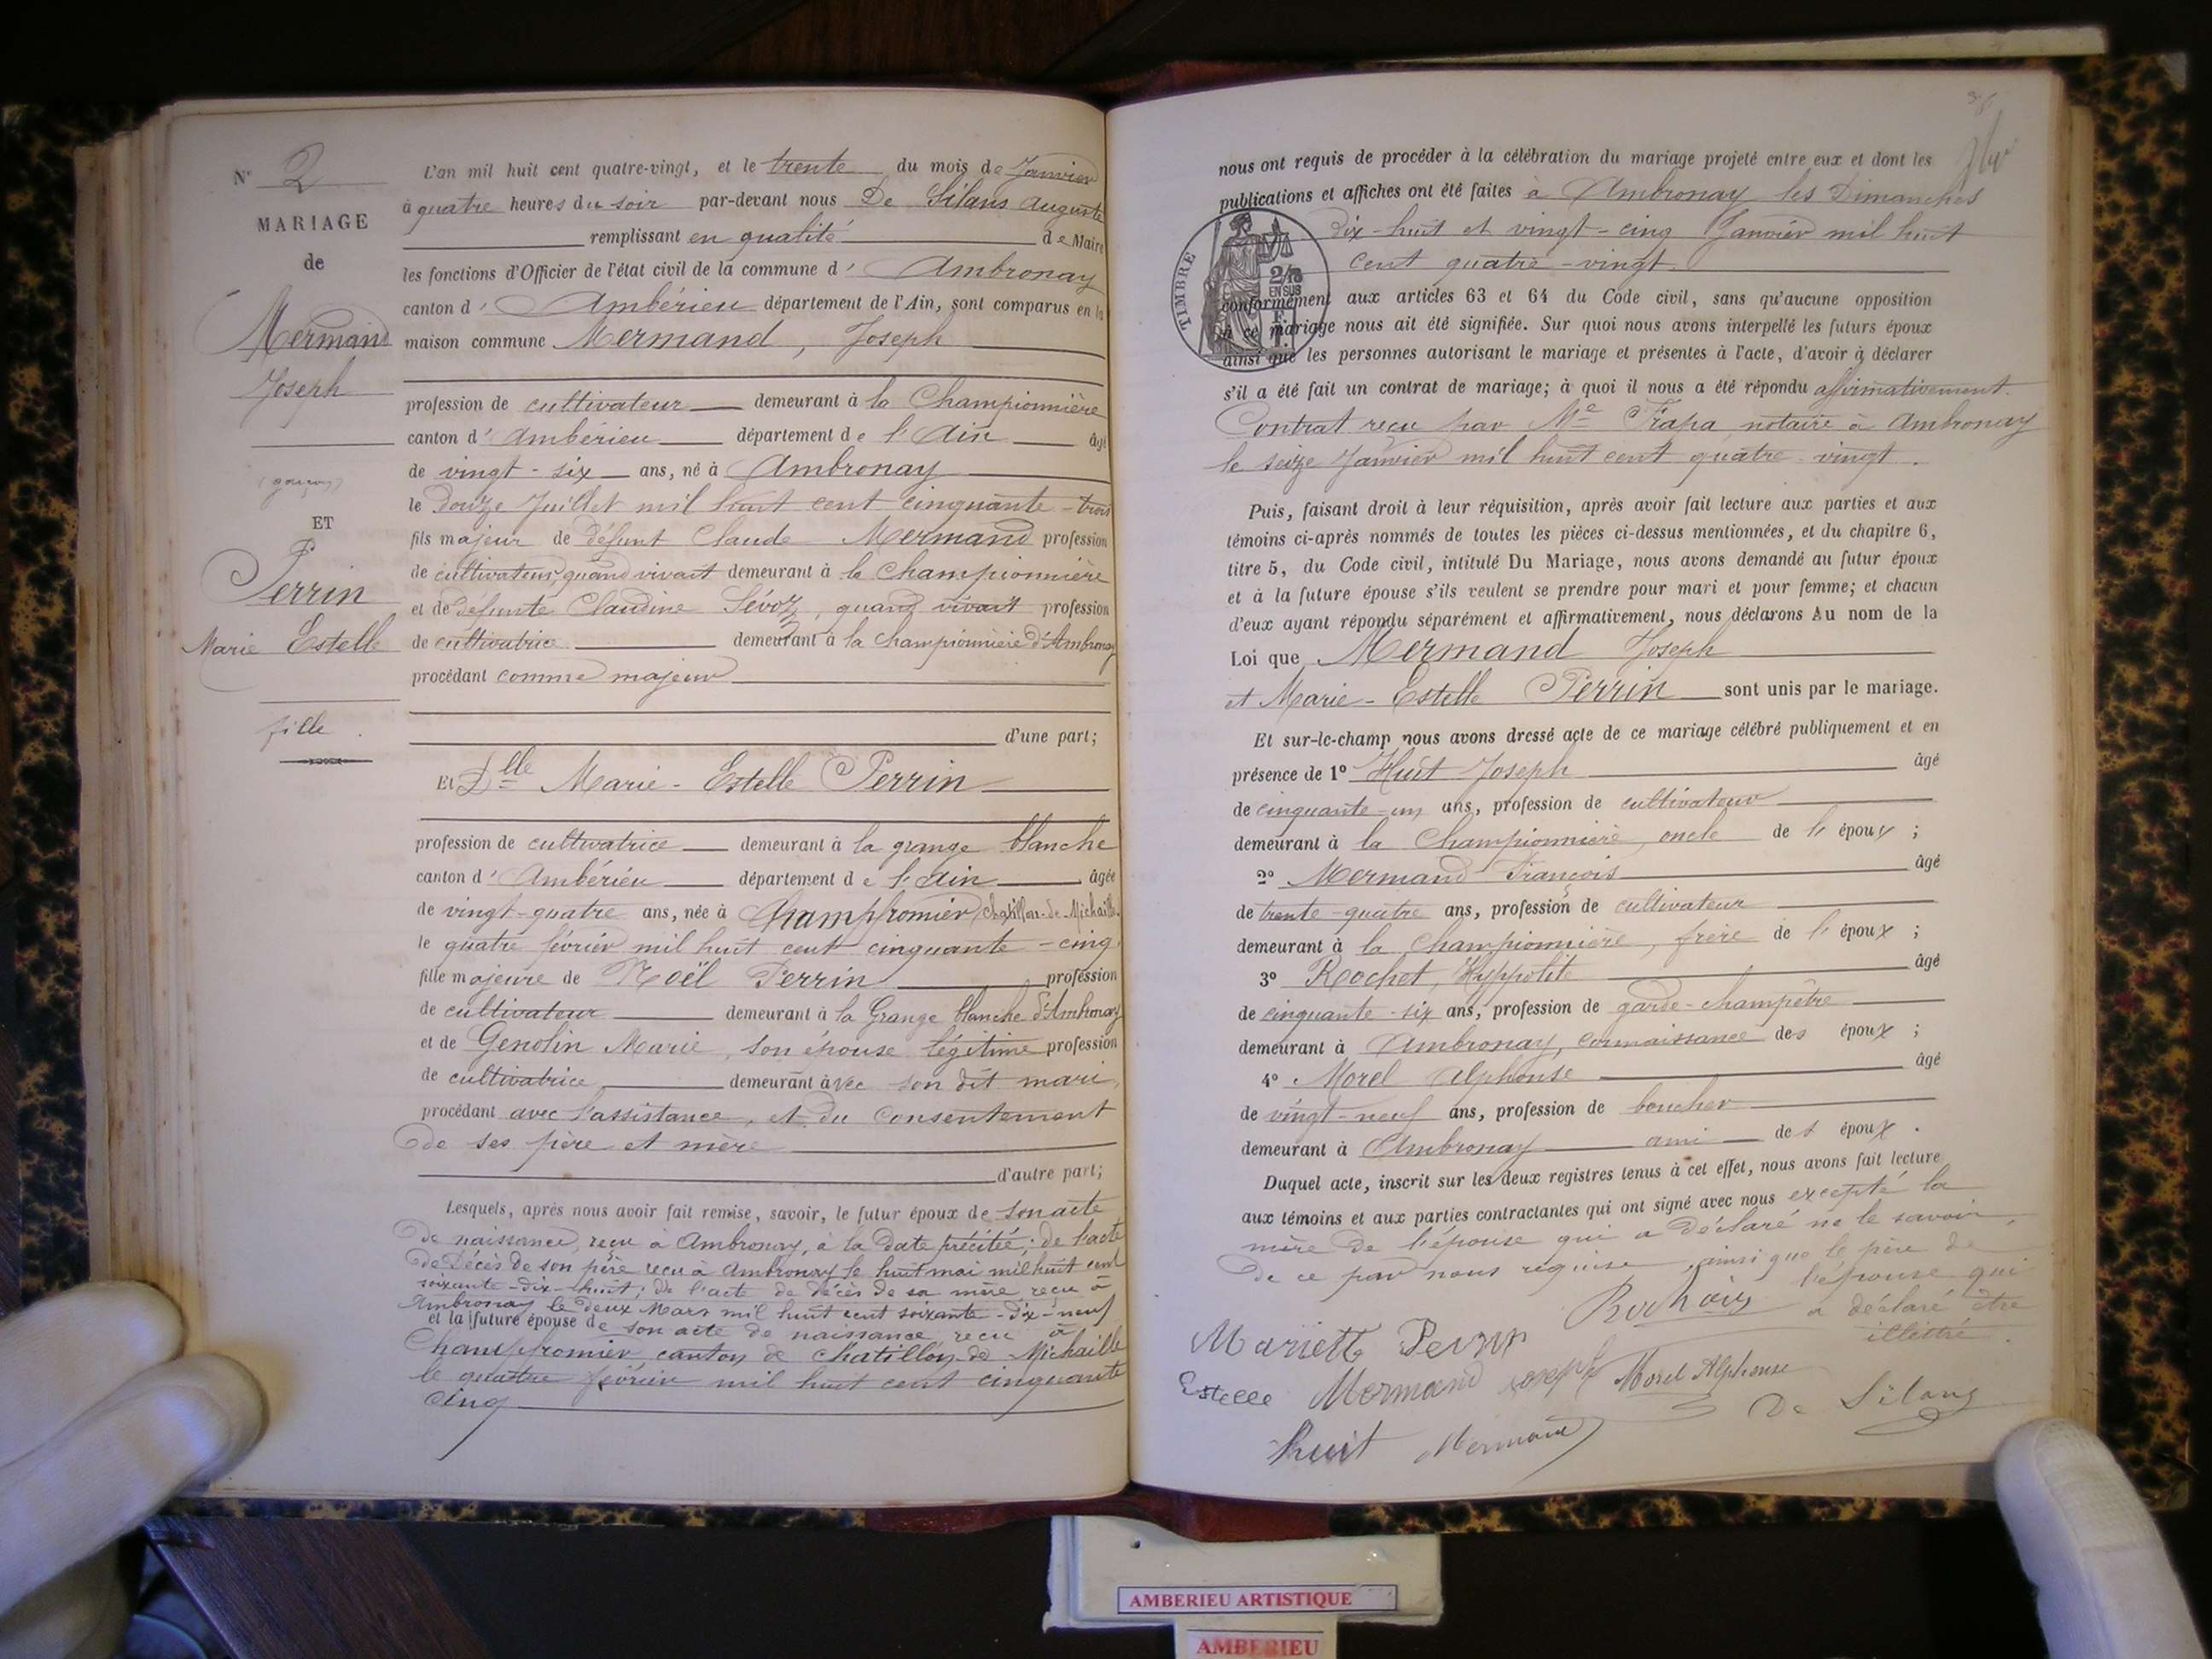 N° 2
MARIAGE
de
Mermand
Joseph
(garçon)
ET
Perrin
Marie Estelle
fille
L'an mil huit cent quatre-vingt, et le trente du mois de Janvier
à quatre heures du soir par-devant nous De Silans Auguste
remplissant en qualité de Maire
les fonctions d'Officier de l'état civil de la commune d' Ambronay
canton d' Ambérieu département de l'Ain, sont comparus en la
maison commune Mermand, Joseph
profession de cultivateur demeurant à la Championnière
canton d' Ambérieu département de l'Ain âgé
de vingt-six ans, né à Ambronay
le douze Juillet mil huit cent cinquante-trois
fils majeur de défunt Claude Mermand profession
de cultivateur, quand vivait demeurant à la Championnière
et de défunte Claudine Sévoz, quand vivait profession
de cultivatrice demeurant à la Championnière d'Ambronay
procédant comme majeur
d'une part;
Et Dlle Marie-Estelle Perrin
profession de cultivatrice demeurant à la grange blanche
canton d' Ambérieu département de l'Ain âgée
de vingt-quatre ans, née à Champfromier, Chatillon-de-Michaille
le quatre février mil huit cent cinquante-cinq
fille majeure de Noël Perrin profession
de cultivateur demeurant à la Grange blanche d'Ambronay
et de Genolin Marie, son épouse légitime profession
de cultivatrice demeurant avec son dit mari,
procédant avec l'assistance, et du consentement
de ses père et mère
d'autre part;
Lesquels, après nous avoir fait remise, savoir, le futur époux de son acte
de naissance, reçu à Ambronay, à la date précitée; de l'acte
de décès de son père reçu à Ambronay le huit mai mil huit cent
soixante-dix-huit; de l'acte de décès de sa mère, reçu à
Ambronay le deux Mars mil huit cent soixante-dix-neuf
et la future épouse de son acte de naissance reçu à
Champfromier, canton de Chatillon-de-Michaille
le quatre février mil huit cent cinquante
cinq
nous ont requis de procéder à la célébration du mariage projeté entre eux et dont les
publications et affiches ont été faites à Ambronay les Dimanches
dix-huit et vingt-cinq Janvier mil huit
cent quatre-vingt.
TIMBRE
EN SUS
conformément aux articles 63 et 64 du Code civil, sans qu'aucune opposition
à ce mariage nous ait été signifiée. Sur quoi nous avons interpellé les futurs époux
ainsi que les personnes autorisant le mariage et présentes à l'acte, d'avoir à déclarer
s'il a été fait un contrat de mariage; à quoi il nous a été répondu affirmativement.
Contrat reçu par Me Trapa notaire à Ambronay
le seize Janvier mil huit cent quatre-vingt.
Puis, faisant droit à leur réquisition, après avoir fait lecture aux parties et aux
témoins ci-après nommés de toutes les pièces ci-dessus mentionnées, et du chapitre 6,
titre 5, du Code civil, intitulé Du Mariage, nous avons demandé au futur époux
et à la future épouse s'ils veulent se prendre pour mari et pour femme; et chacun
d'eux ayant répondu séparément et affirmativement, nous déclarons Au nom de la
Loi que Mermand Joseph
et Marie-Estelle Perrin sont unis par le mariage.
Et sur-le-champ nous avons dressé acte de ce mariage célébré publiquement et en
présence de 1° Huit Joseph âgé
de cinquante-un ans, profession de cultivateur
demeurant à la Championnière, oncle de l'époux;
2° Mermand François âgé
de trente-quatre ans, profession de cultivateur
demeurant à la Championnière, frère de l'époux;
3° Rochet, Hyppolite âgé
de cinquante-six ans, profession de garde-champêtre
demeurant à Ambronay, connaissance des époux;
4° Morel Alphonse âgé
de vingt-neuf ans, profession de boucher
demeurant à Ambronay ami des époux.
Duquel acte, inscrit sur les deux registres tenus à cet effet, nous avons fait lecture
aux témoins et aux parties contractantes qui ont signé avec nous excepté la
mère de l'épouse qui a déclaré ne le savoir,
de ce par nous requise, ainsi que le père de
l'épouse qui
a déclaré être
illettré.
Mariett Perrin
Estelle Mermand Joseph Morel Alphonse
De Silans
huit Mermand
AMBERIEU ARTISTIQUE
AMBERIEU